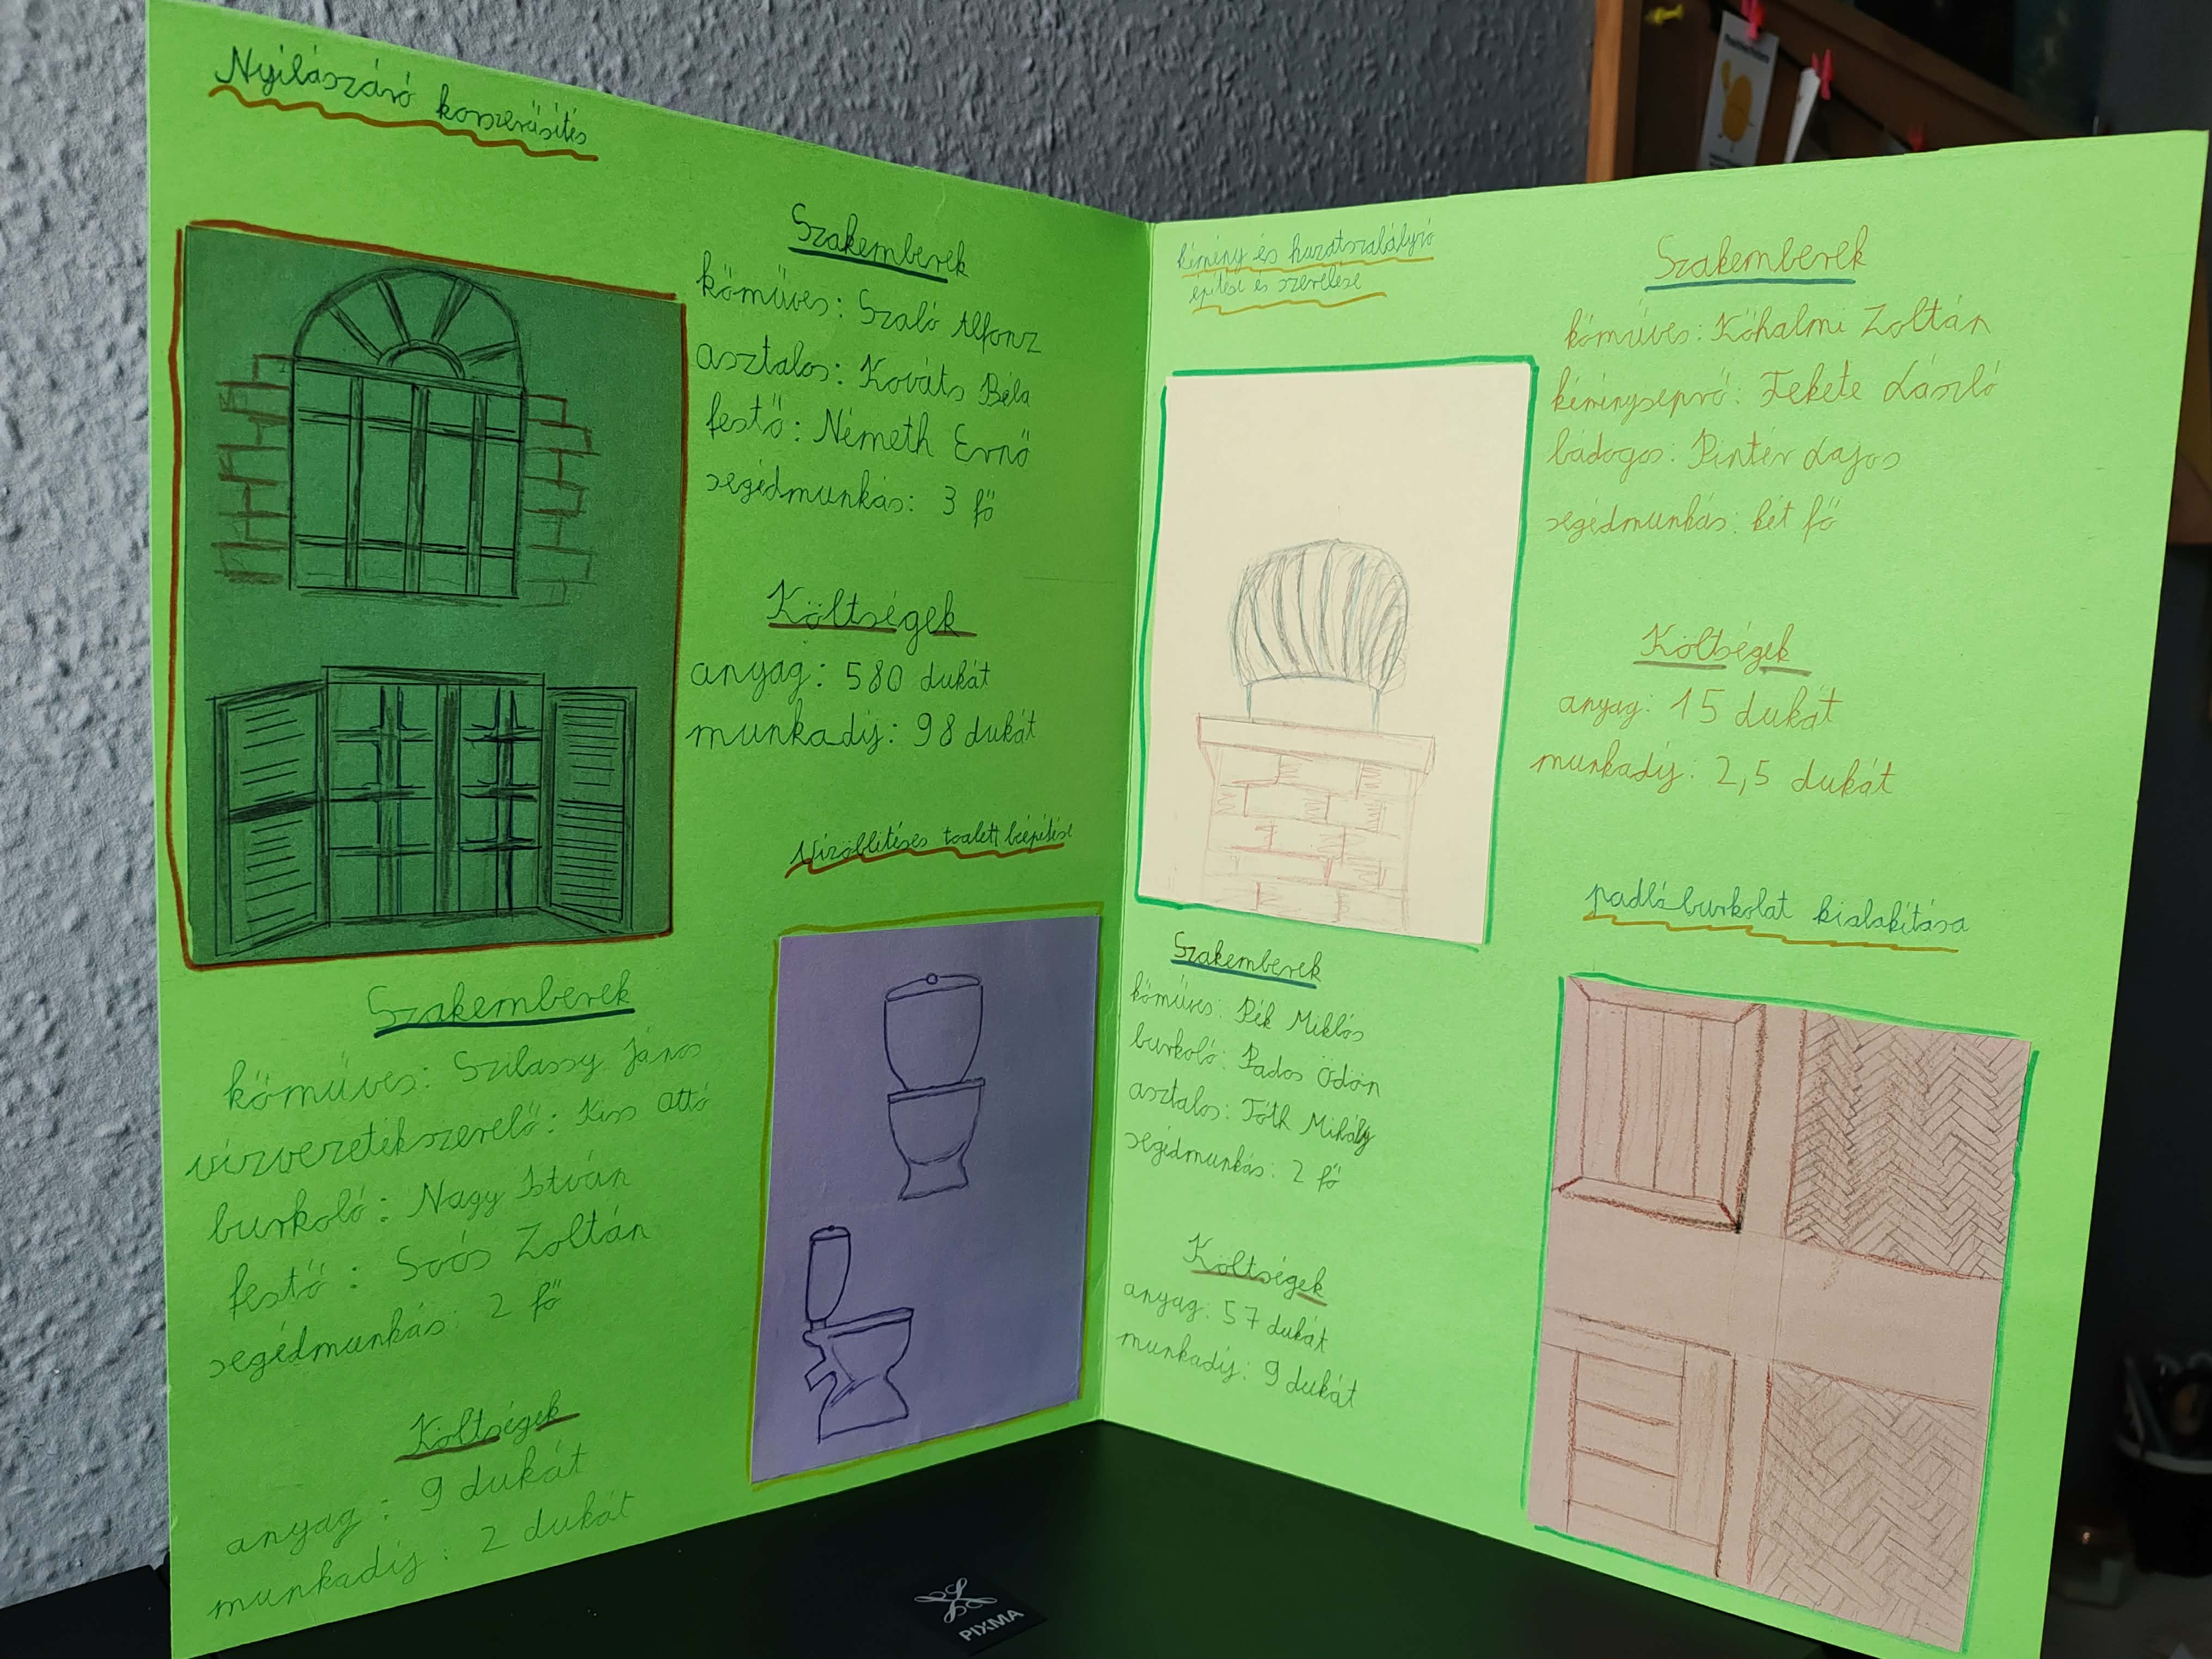 Nyilászáró korszerűsítés
Szakemberek
kőműves: Szaló Alfonz
asztalos: Kováts Béla
festő: Németh Ernő
segédmunkás: 3 fő
Költségek
anyag: 580 dukát
munkadíj: 98 dukát
Vízöblítéses toalett beépítése
Szakemberek
kőműves: Szilassy János
vízvezetékszerelő: Kiss Ottó
burkoló: Nagy István
festő: Soós Zoltán
segédmunkás: 2 fő
Költségek
anyag: 9 dukát
munkadíj: 2 dukát
kémény és huzatszabályzó
építése és szerelése
Szakemberek
kőműves: Kőhalmi Zoltán
kéményseprő: Fekete László
bádogos: Pintér Lajos
segédmunkás: két fő
Költségek
anyag: 15 dukát
munkadíj: 2,5 dukát
padlóburkolat kialakítása
Szakemberek
kőműves: Pék Miklós
burkoló: Pados Ödön
asztalos: Tóth Mihály
segédmunkás: 2 fő
Költségek
anyag: 57 dukát
munkadíj: 9 dukát
PIXMA